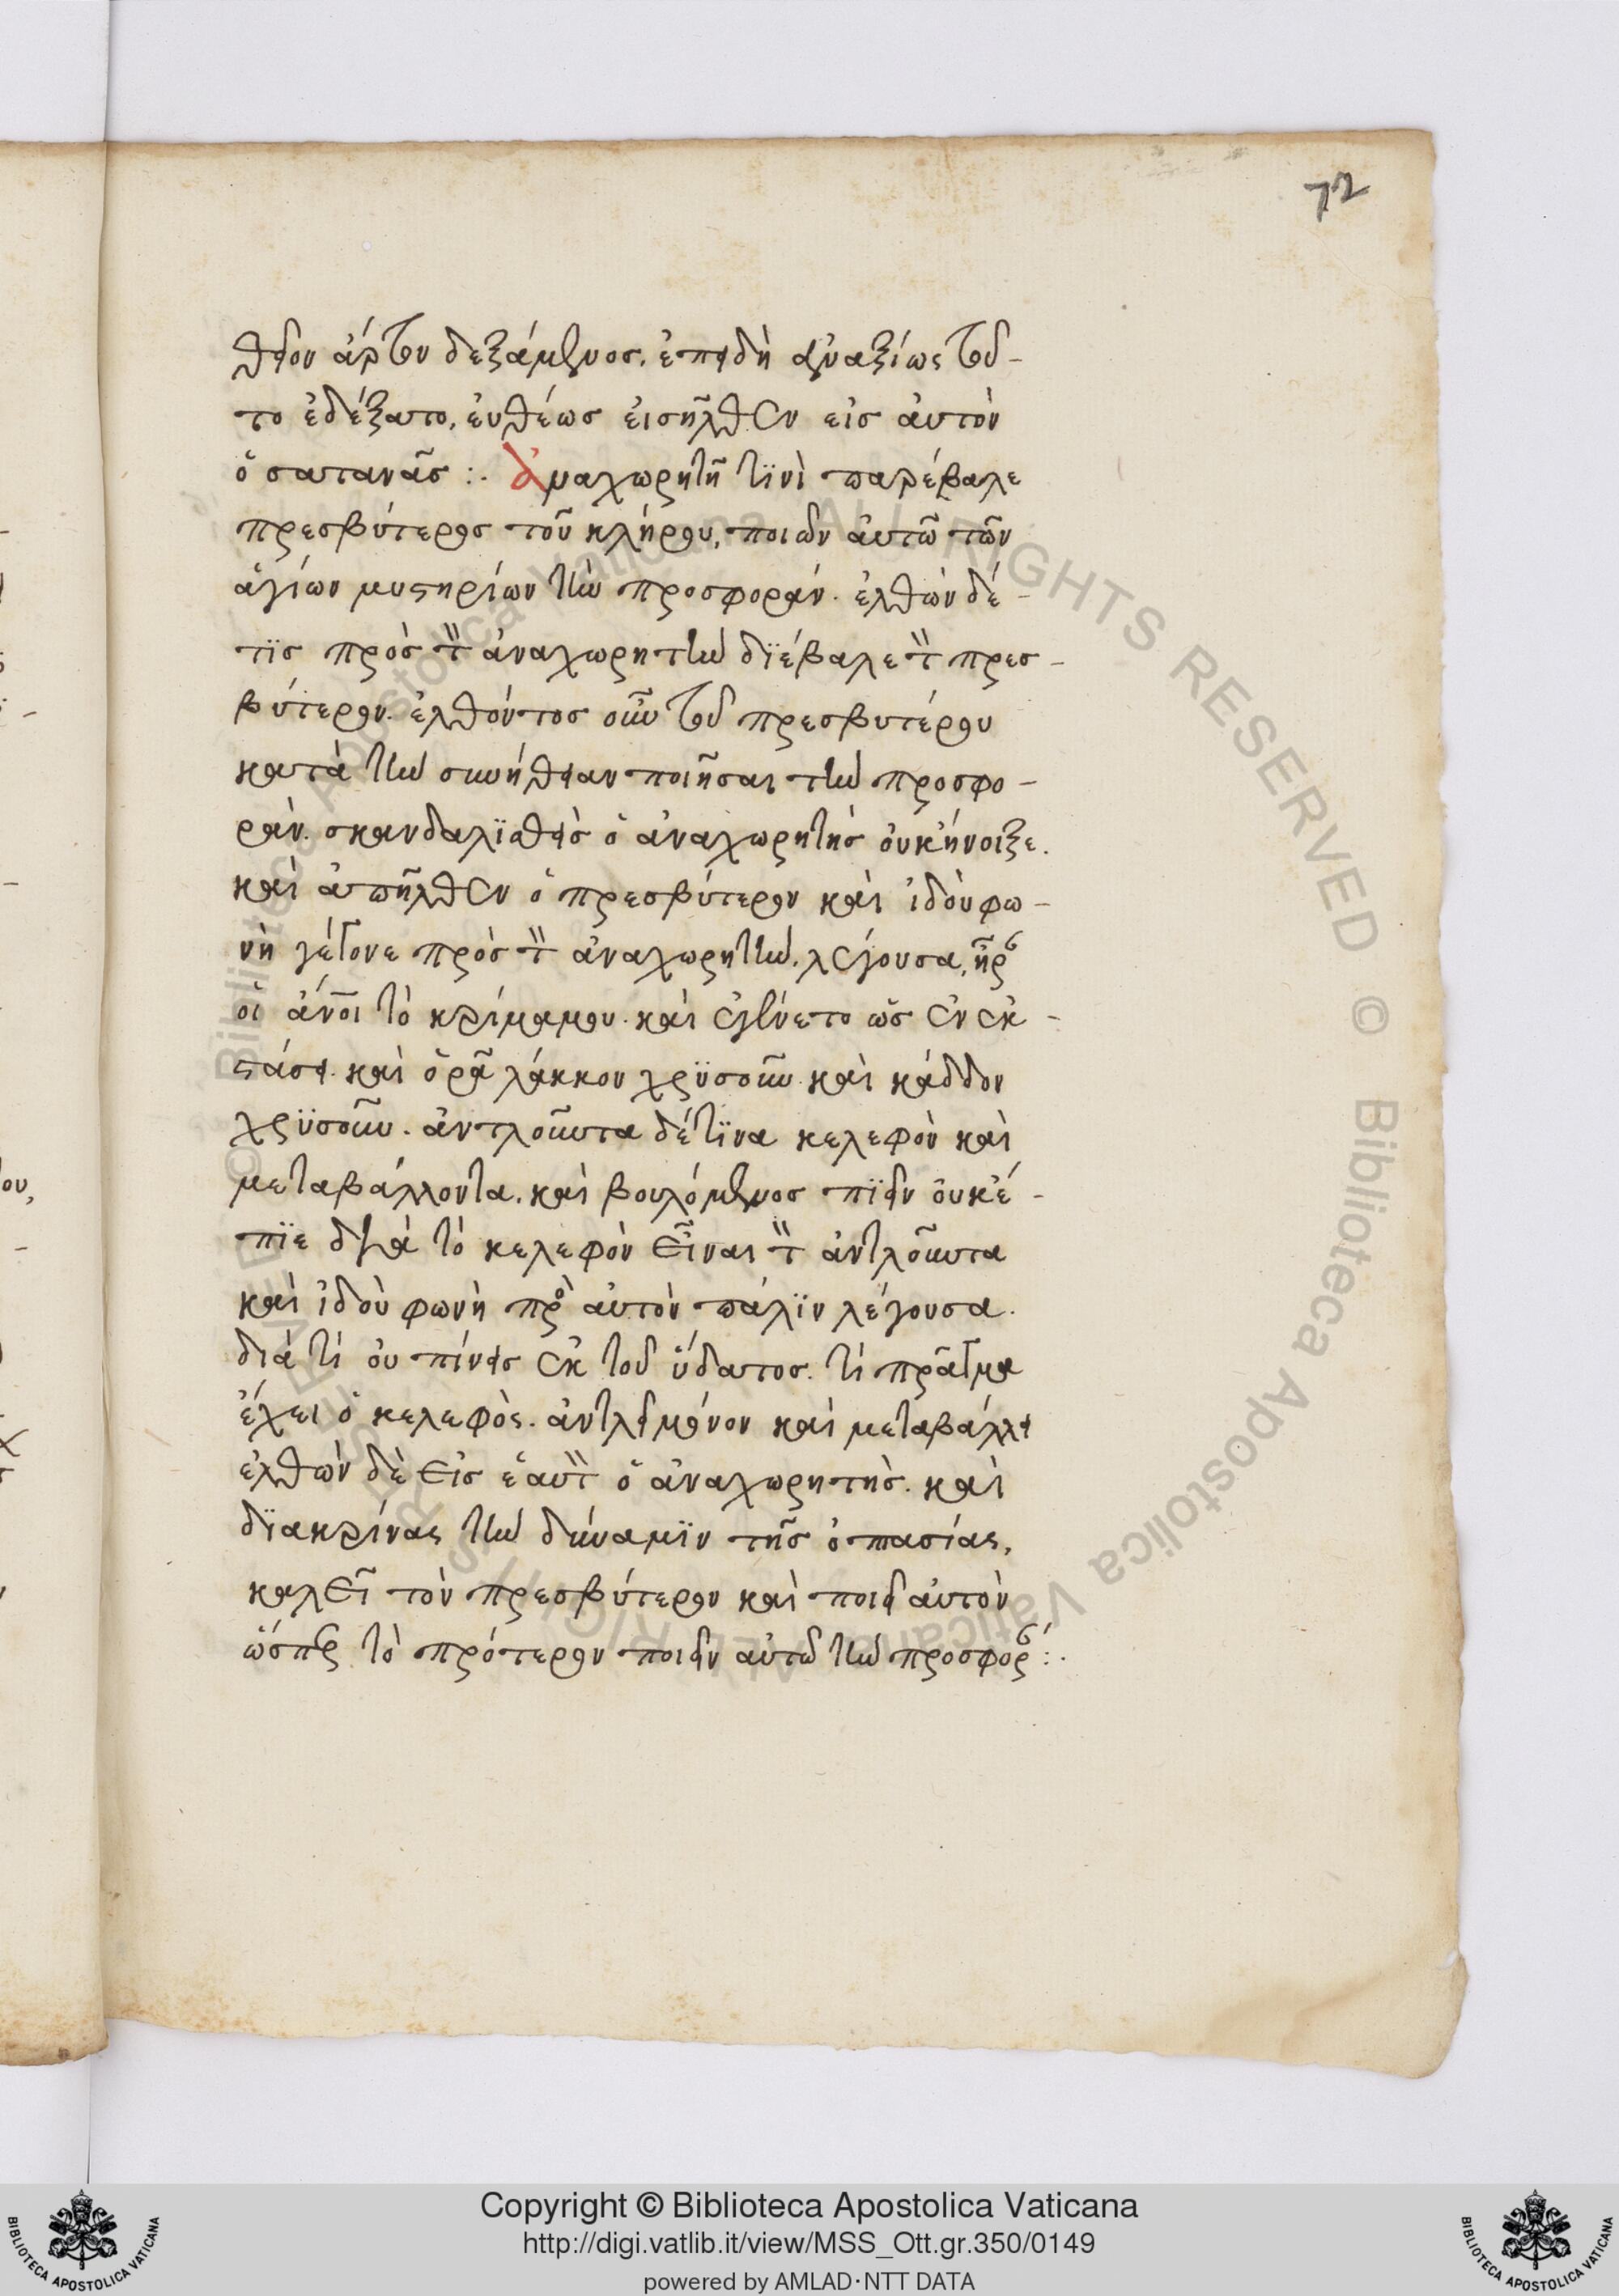 72
θεῖον ἄρτον δεξάμενος, ἐπειδὴ ἀναξίως τοῦ-
το ἐδέξατο, ἐυθέως ἐισῆλθεν εἰς ἀυτὸν
ὁ σατανᾶς :· Ἀναχωρητῆ τϊνὶ παρέβαλε
πρεσβύτερος τοῦ κλήρου, ποιῶν ἀυτῶ τῶν
ἁγίων μυστηρίων τὴν προσφοράν. ἐλθὼν δέ-
τϊς πρὸς τ̏ ἀναχωρητὴν δϊέβαλε τ̏ πρεσ-
βύτερον. ἐλθόντος οὖν τοῦ πρεσβυτέρου
κατὰ τὴν συνήθειαν ποιῆσαι τὴν προσφο-
ράν. σκανδαλϊσθεὶς ὁ ἀναχωρητὴς ὀυκ ἤνοιξε.
καὶ ἀπῆλθεν ὁ πρεσβύτερον καὶ ἰδοὺ φω-
νὴ γέγονε πρὸς τ̏ ἀναχωρητὴν. λέγουσα, ἦρ
οἱ ἄνοι τὸ κρίμαμου. καὶ ἐγένετο ὡς ἐν ἐκ-
στάσει. καὶ ὁρᾶ λάκκον χρϋσοῦν καὶ κάδδον
χρϋσοῦν. ἀντλοῦντα δέ τϊνα κελεφὸν καὶ
μεταβάλλοντα. καὶ βουλόμενος πϊεῖν ὀυκ έ-
πϊε διὰ τὸ κελεφὸν εἶναι τ̏ ἀντλοῦντα
καὶ ἰδοὺ φωνὴ πρὸ αὐτὸν πάλϊν λέγουσα.
διὰ τί ὀυ πίνεις ἐκ τοῦ ὕδατος. τί πρᾶγμα
ἔχει ὁ κελεφὸς. ἀντλεῖ μόνον καὶ μεταβάλλει
ἐλθὼν δὲ εἰς ἑαυτ̏ ὁ ἀναχωρητὴς. καὶ
δϊακρίνας τὴν δύναμϊν τῆς ὀπτασίας,
καλεῖ τὸν πρεσβύτερον καὶ ποιεῖ ἀυτὸν
ὥσπερ τὸ πρότερον ποιεῖν αὐτῶ τὴν προσφορ :·
© Biblioteca Apostolica Vaticana ALL RIGHTS RESERVED © Biblioteca Apostolica Vaticana ALL RIGHTS RESERVED
Copyright © Biblioteca Apostolica Vaticana
http://digi.vatlib.it/view/MSS_Ott.gr.350/0149
powered by AMLAD·NTT DATA
BIBLIOTECA APOSTOLICA VATICANA
BIBLIOTECA APOSTOLICA VATICANA